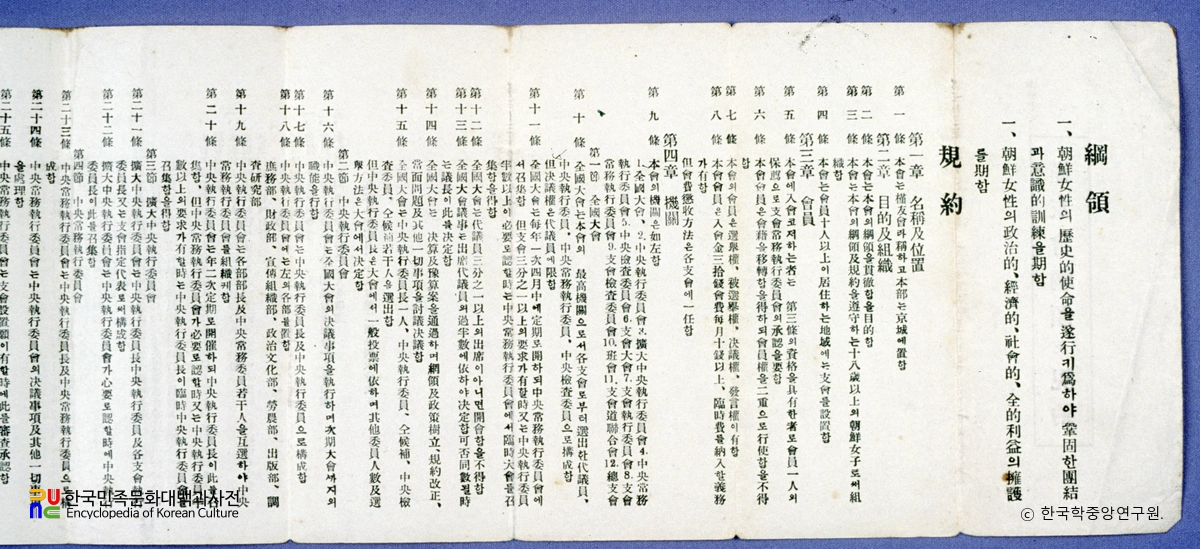 綱領
一、朝鮮女性의 歷史的使命을 遂行키爲하야 鞏固한團結
과意識的訓練을期함
一、朝鮮女性의政治的、經濟的、社會的、全的利益의擁護
를期함
規約
第一章 名稱及位置
第一條 本會는槿友會라稱하고本部는京城에置함
第二章 目的及組織
第二條 本會는本會의綱領을貫徹함을目的함
第三條 本會는本會의綱領及規約을遵守하는十八歲以上의朝鮮女子로써組
織함
第四條 本會는會員十人以上이居住하는地域에는支會를設置함
第三章 會員
第五條 本會에入會코저하는者는 第三條의資格을具有한者로會員一人의
保薦으로支會常務執行委員會의承認을要함
第六條 本會會員은會籍을移轉함을得하되會員權을二重으로行使함을不得
함
第七條 本會의會員은選擧權、被選擧權、決議權、發言權이有함
第八條 本會會員은入會金三拾錢會費每月十錢以上、臨時費를納入할義務
가有함
但會費懲收方法은各支會에一任함
第四章 機關
第九條 本會의機關은如左함
1.全國大會、2.中央執行委員會3.擴大中央執行委員會4.中央常務
執行委員會5.中央檢查委員會6.支會大會7.支會執行委員會8.支會
常務執行委員會9.支會檢查委員會10.班會11.支會道聯合會12.總支會
第一節 全國大會
第十條 全國大會는本會의 最高機關으로서各支會로부터選出한代議員、
中央執行委員、中央常務執行委員、中央檢查委員으로構成함
但決議權은代議員에限함
第十一條 全國大會는每年一次四月中에定期로開하되中央執行委員會에
서召集함 但支會三分之一以上의要求가有할時又는中央執行委員
半數以上이必要로認할時는中央執行委員會에서臨時大會를召
集함을得함
第十二條 全國大會는代議員三分之一以上의出席이아니면開會함을不得함
第十三條 全國大會議事는出席代議員의過半數에依하야決定함可否同數될時
는議長이此를決定함
第十四條 全國大會는 決算及豫算案을通過하며綱領及政策樹立、規約改正、
當面問題及其他一切事項을討議決議함
第十五條 全國大會는中央執行委員長一人、中央執行委員、仝候補、中央檢
查委員、仝候補若干人을選出함
但中央執行委員長은大會에서一般投票에依하며其他委員人數及選
擧方法은大會에서決定함
第二節 中央執行委員會
第十六條 中央執行委員會는全國大會의決議事項을執行하며次期大會까지의
職能을行함
第十七條 中央執行委員會는中央執行委員長及中央執行委員으로構成함
第十八條 中央執行委員會에는左의各部를置함
庶務部、財政部、宣傳組織部、政治文化部、勞農部、出版部、調
查硏究部
第十九條 中央執行委員會는各部部長及中央常務委員若干人을互選하야中央
常務執行委員會를組織케함
第二十條 中央執行委員會는年二次定期로開催하되中央執行委員長이此를召
集함、但中央常務執行委員會가必要로認할時又는中央執行委員半
數以上의要求가有할時는中央執行委員長이臨時中央執行委員會를
召集함을得함
第三節 擴大中央執行委員會
第二十一條 擴大中央執行委員會는中央執行委員長中央執行委員及各支會執行
委員長又는支會指定代表로써構成함
第二十二條 擴大中央執行委員會는中央執行委員會가必要로認할時에中央執行
委員長이此를召集함
第四節 中央常務執行委員會
第二十三條 中央常務執行委員會는中央執行委員長及中央常務執行委員으로構
成함
第二十四條 中央常務執行委員會는中央執行委員會의決議事項及其他一切事務
를處理함
第二十五條 中央常務執行委員會는支會設置願이有할時에此를審查承認함
한국민족문화대백과사전
Encyclopedia of Korean Culture
© 한국학중앙연구원.